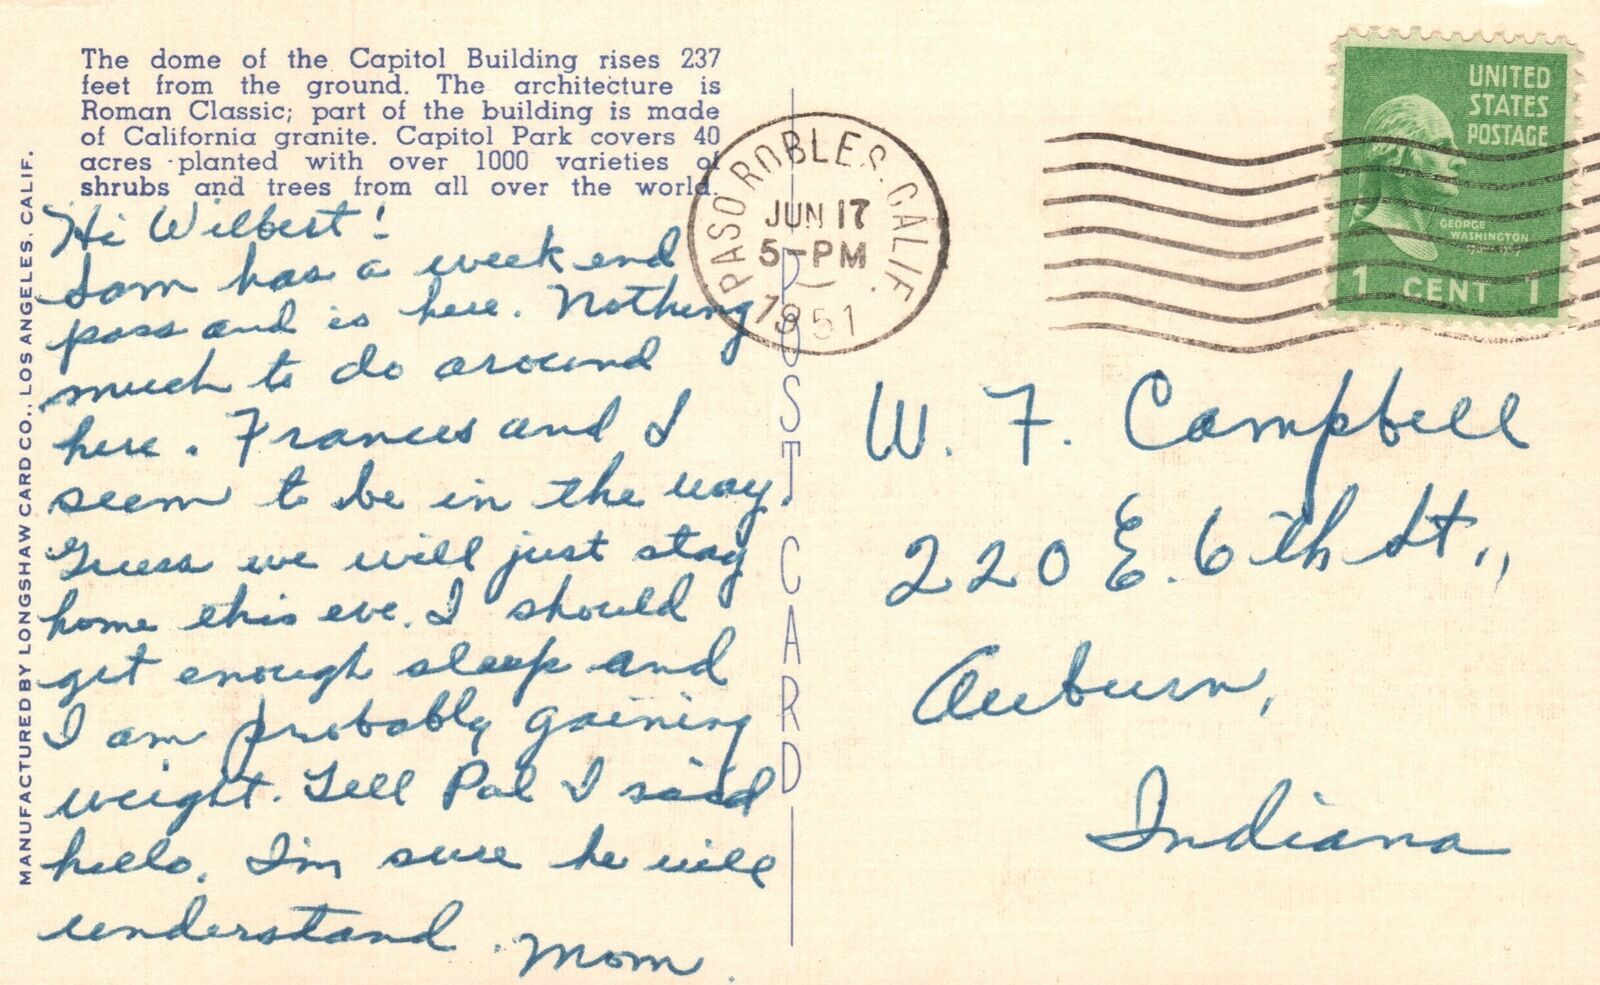 The dome of the Capitol Building rises 237
feet from the ground. The architecture is
Roman Classic; part of the building is made
of California granite. Capitol Park covers 40
acres planted with over 1000 varieties of
shrubs and trees from all over the world.
Hi Wilbert!
Sam has a week end
pass and is here. Nothing
much to do around
here. Frances and I
seem to be in the way.
Guess we will just stay
home this eve. I should
get enough sleep and
I am probably gaining
weight. Tell Pal I said
hello. I'm sure he will
understand. Mom.
MANUFACTURED BY LONGSHAW CARD CO., LOS ANGELES, CALIF.
POST CARD
PASO ROBLES. CALIF.
JUN 17
5-PM
1951
UNITED
STATES
POSTAGE
GEORGE
WASHINGTON
1 CENT 1
W. F. Campbell
220 E. 6th St.,
Auburn,
Indiana